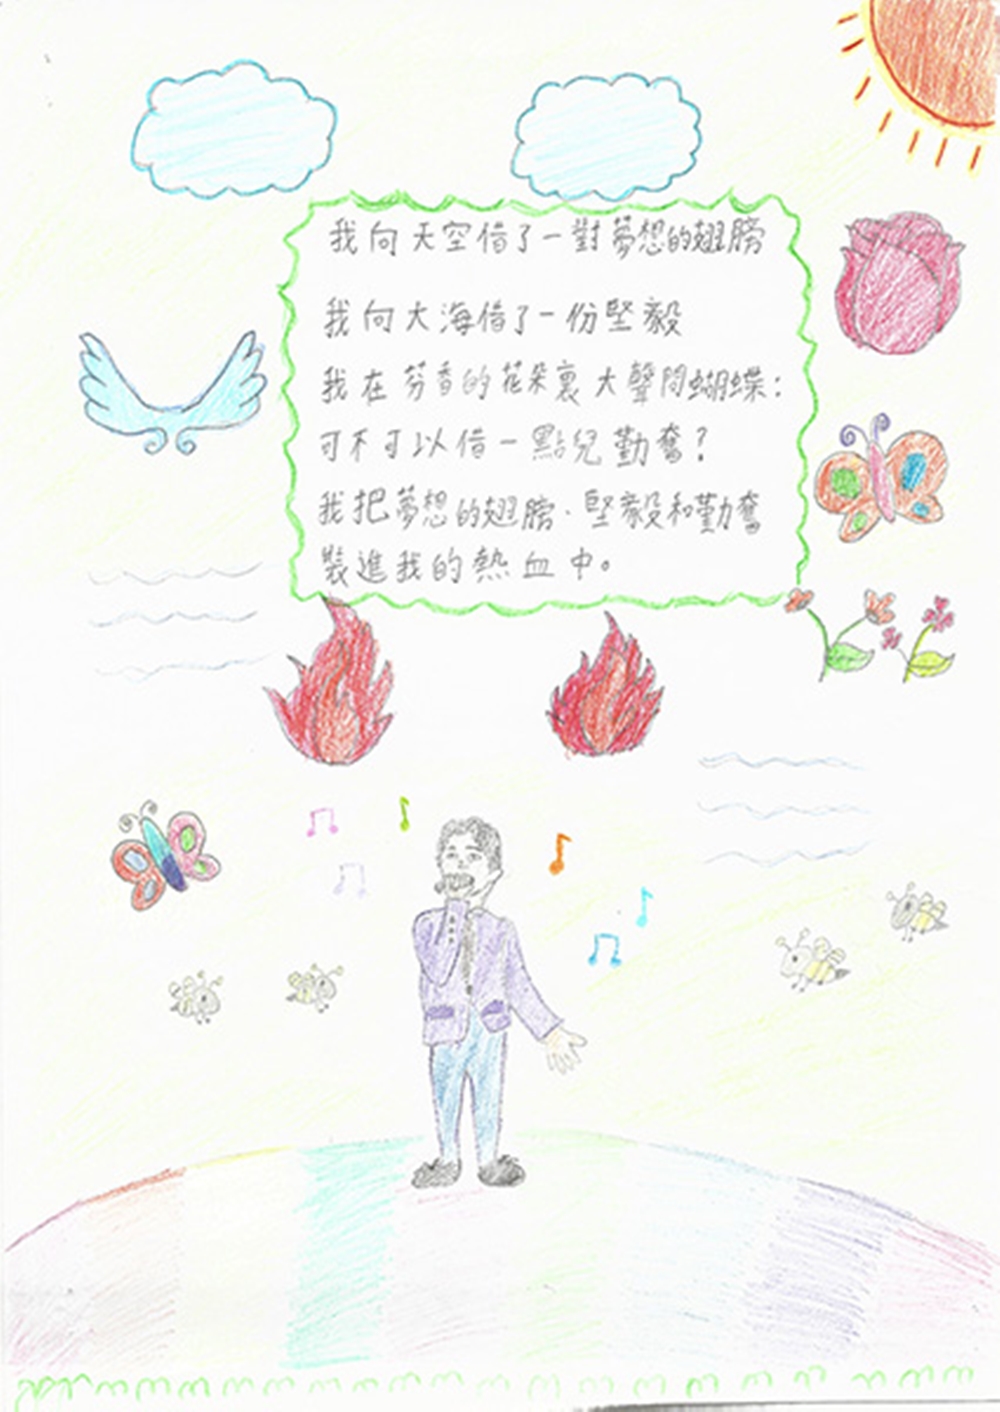 我向天空借了一對夢想的翅膀
我向大海借了一份堅毅
我在芬香的花朵裏大聲問蝴蝶：
可不可以借一點兒勤奮？
我把夢想的翅膀．堅毅和勤奮
裝進我的熱血中。